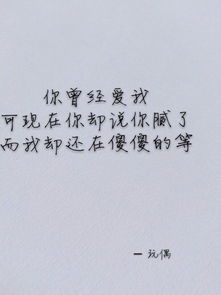 你曾经爱我
可现在你却说你腻了
而我却还在傻傻的等
一玩偶